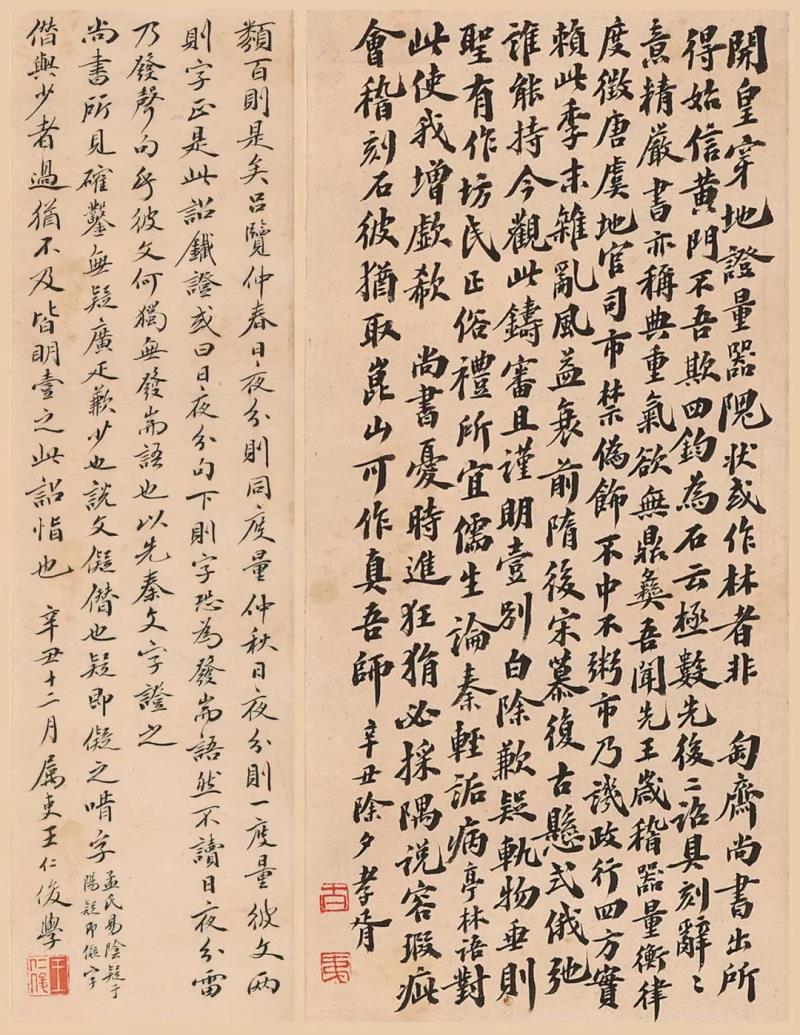 開皇穿地證量器隗状或作林者非 匋齋尚書出所
得始信黃門不吾欺四鈞為石云極數先後二詔具刻辭〻
意精嚴書亦稱典重氣欲無鼎彝吾聞先王歲稽器量衡律
度徵唐虞地官司市禁偽飾不中不粥市乃譏政行四方實
賴此季末雜亂風益衰前隋後宋慕復古懸式俄弛
誰能持今觀此鑄審且謹明壹別白除歉疑軌物垂則
聖有作坊民正俗禮所宜儒生論秦輕詬病亭林語對
此使我增歔欷 尚書憂時進狂狷必採隅説容瑕疵
會稽刻石彼猶取崑山可作真吾師 辛丑除夕孝胥
類百則是矣呂覽仲春日夜分則同度量仲秋日夜分則一度量彼文兩
則字正是此詔鐵證或曰日夜分句下則字恐為發耑語然不讀日夜分雷
乃發聲句乎彼文何獨無發耑語也以先秦文字證之
尚書所見確鑿無疑廣疋歉少也説文儗僭也疑即儗之字
孟氏易陰疑于
陽疑即儗字
僭與少者過猶不及皆明壹之此詔恉也 辛丑十二月屬吏王仁俊學
王仁俊